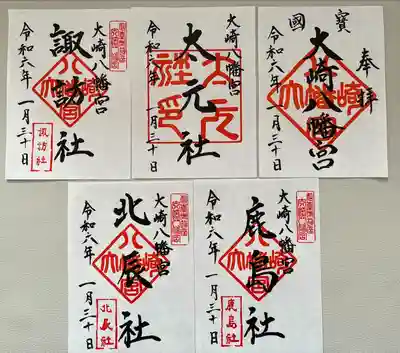 大崎八幡宮
諏訪社
令和六年 一月三十日
諏訪社
大崎八幡宮
大元社
令和六年 一月三十日
大元社印
奉拝
國寶
大崎八幡宮
令和六年 一月三十日
大崎八幡宮
北辰社
令和六年 一月三十日
北辰社
大崎八幡宮
鹿島社
令和六年 一月三十日
鹿島社